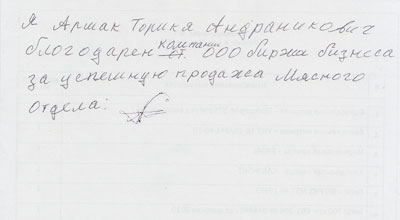 Я Аршак Торикя Андраникович
благодарен компании ООО биржи бизнеса
за успешную продажса Мясного
отдела: